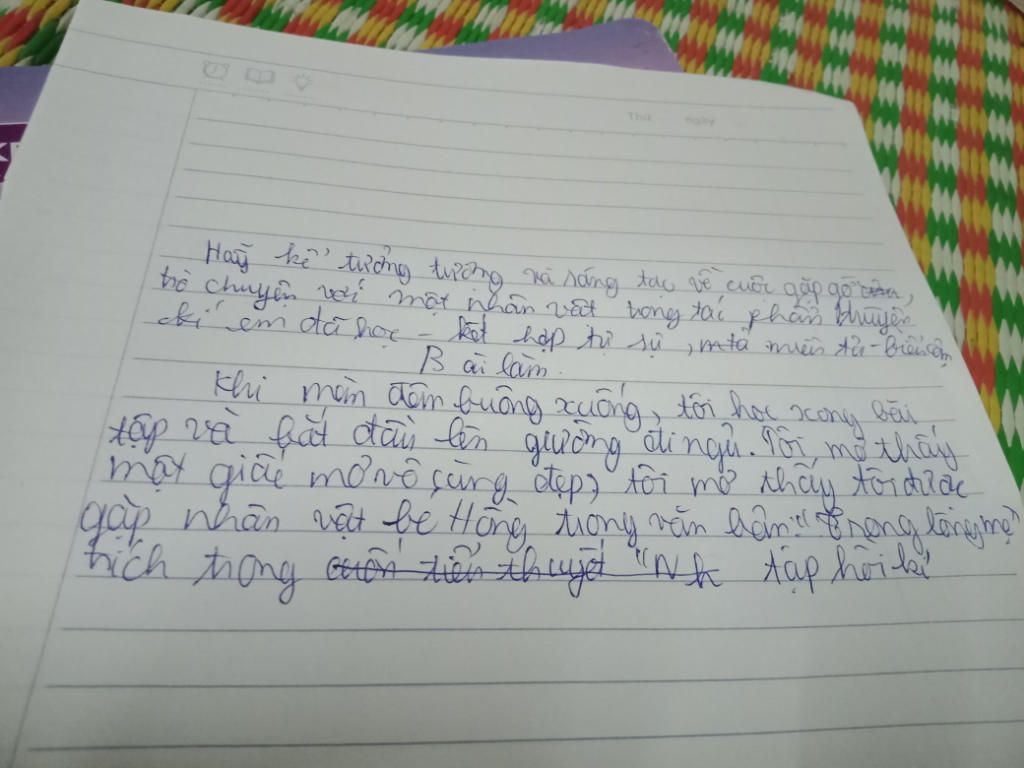 Thứ ngày
Hãy kể tưởng tượng và sáng tạc về cuộc gặp gỡ,
trò chuyện với một nhân vật trong tác phẩm truyện
kí em đã học - kết hợp tự sự, mtả miên tả - biểu cảm
Bài làm.
Khi màn đêm buông xuống, tôi học xong bài
tập và bắt đầu lên giường đi ngủ. Tôi, mơ thấy
một giấc mơ vô cùng đẹp, tôi mơ thấy tôi được
gặp nhân vật bé Hồng trong văn bản "Trong lòng mẹ"
trích trong cuốn tiểu thuyết "Nh tập hồi kí